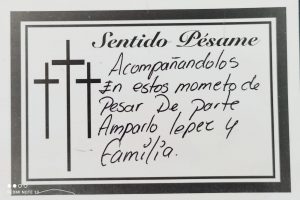 Sentido Pésame
Acompañandolos
En estos mometo de
Pesar De parte
Amparlo leper y
Familia.
REDMI NOTE 13